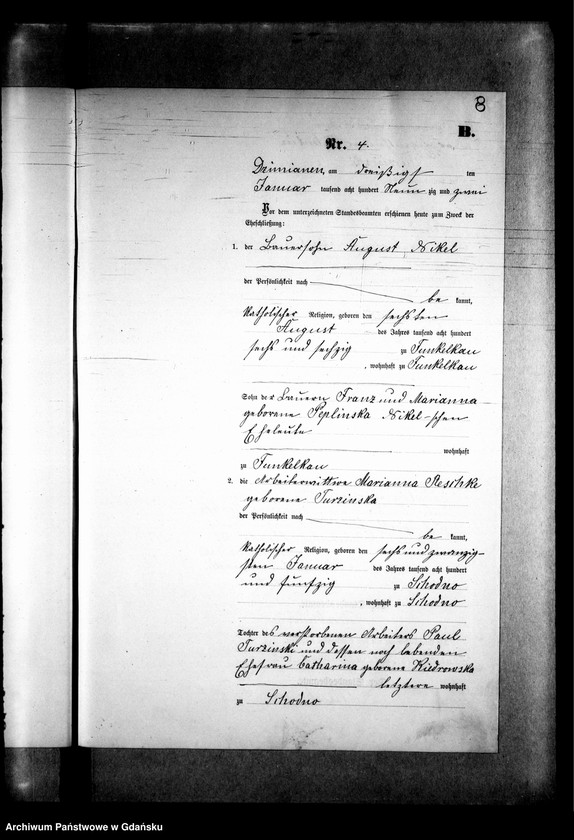 8
B.
Nr. 4.
Dzimianen, am dreißigsten
Januar tausend acht hundert Neunzig und zwei
Vor dem unterzeichneten Standesbeamten erschienen heute zum Zweck der
Eheschließung:
1. der Bauersohn August Nikel
der Persönlichkeit nach
be kannt,
katholischer Religion, geboren den sechsten
August des Jahres tausend acht hundert
sechs und sechzig zu Funkelkau
, wohnhaft zu Funkelkau
Sohn der Bauern Franz und Marianna
geborene Peplinska Nikel-schen
Eheleute
wohnhaft
zu Funkelkau
2. die Arbeiterwittwe Marianna Reschke
geborene Turzinska
der Persönlichkeit nach
be kannt,
katholischer Religion, geboren den sechs und zwanzig-
sten Januar des Jahres tausend acht hundert
und fünfzig zu Schodno
, wohnhaft zu Schodno
Tochter des verstorbenen Arbeiters Paul
Turzinski und dessen noch lebenden
Ehefrau Catharina geborene Kiedrowska
letztere wohnhaft
zu Schodno
Archiwum Państwowe w Gdańsku